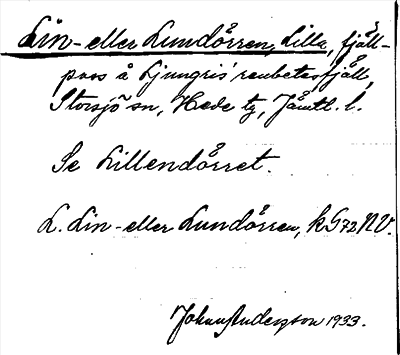 Lin- eller Lundörren, Lilla, fjäll-
pass å Ljungris' renbetesfjäll,
Storsjö sn, Hede tg, Jämtl. l.
Se Lillendörret.
L. Lin- eller Lundörren, k G 72 NV.
Johan Anderzon 1933.